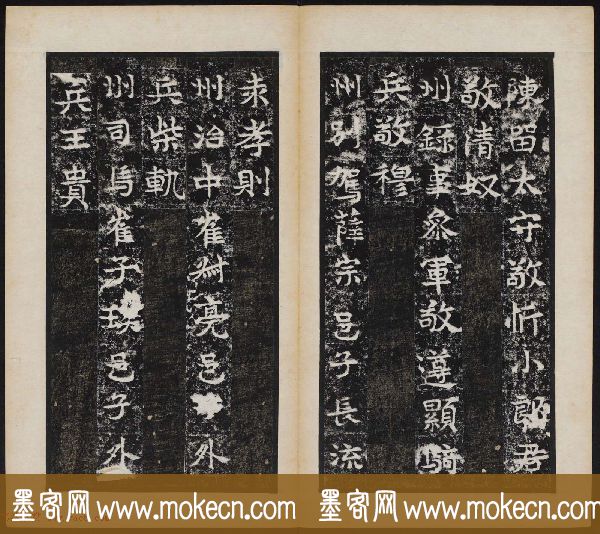 陳留太守敬忻小郎君
敬清奴
州錄事參軍敬遵顯騎
兵敬穆
州別駕薩宗邑子長流
来孝則
州治中崔叔亮邑 外
兵柴軌
州司馬崔子瑛邑子外
兵王貴
墨客网 www.mokecn.com 墨客网 www.mokecn.com